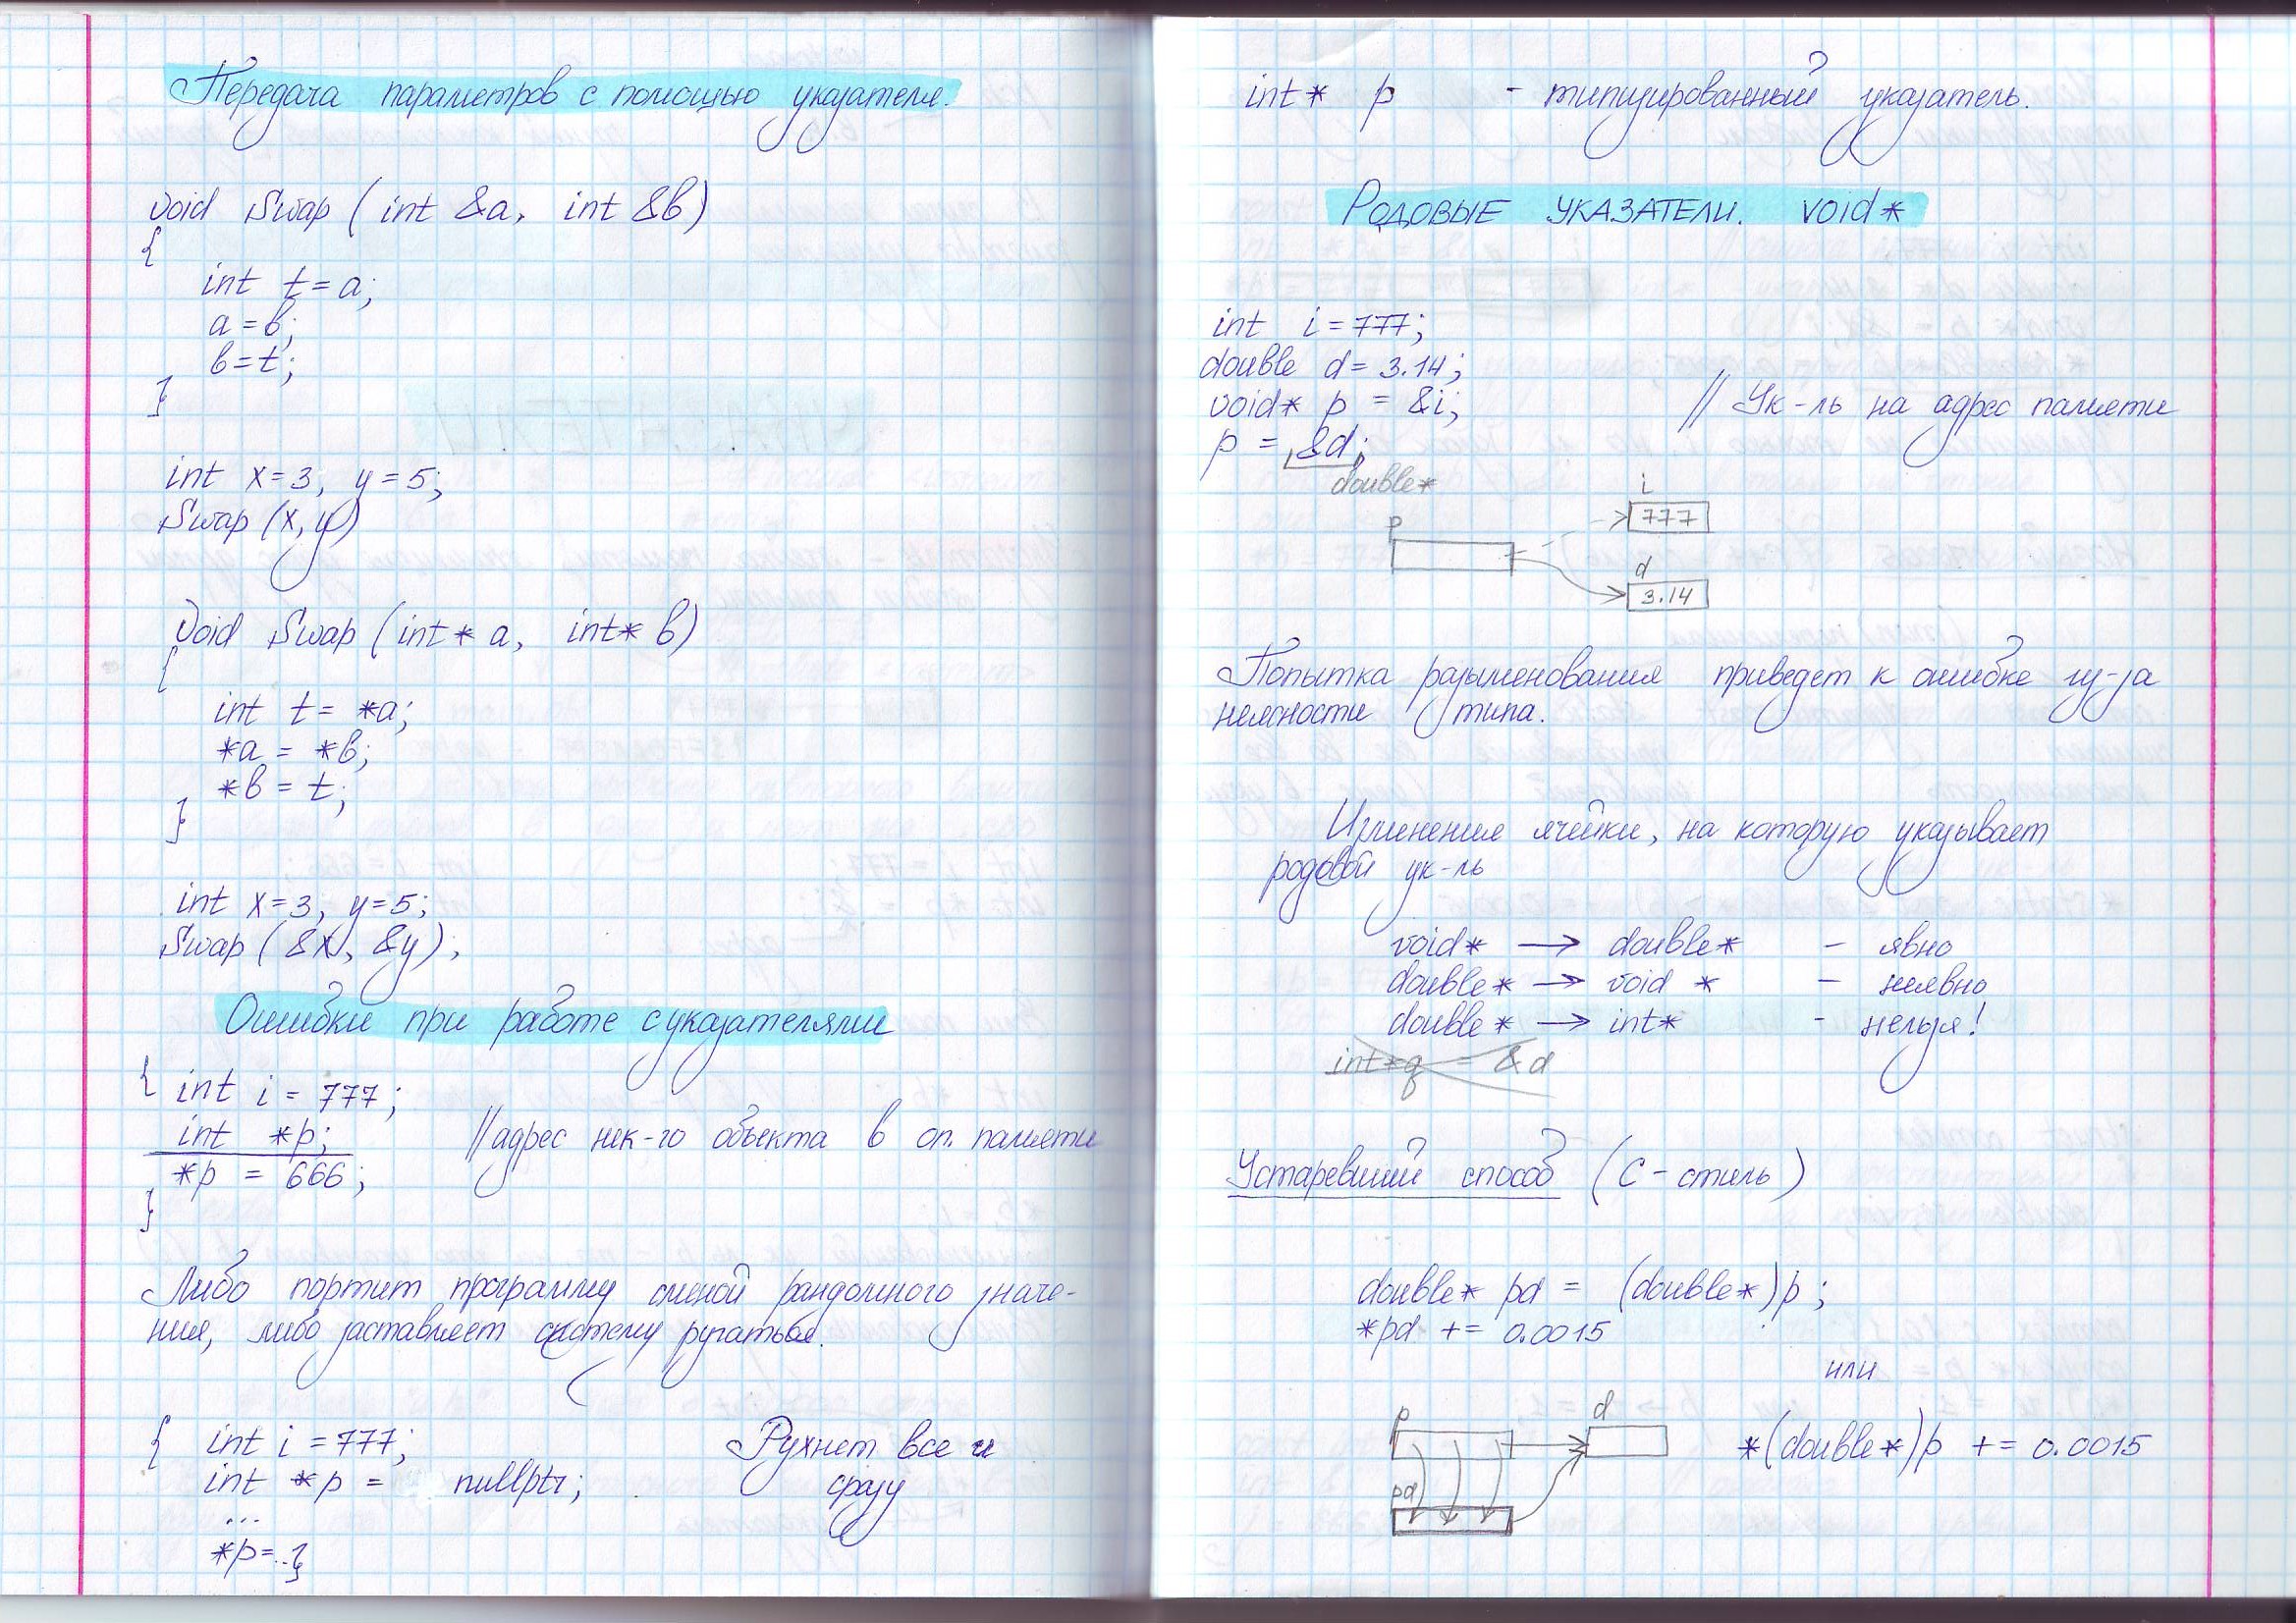 Передача параметров с помощью указателя.
void Swap (int &a, int &b)
{
int t = a;
a = b;
b = t;
}
int x=3, y=5;
Swap (x, y)
void Swap (int* a, int* b)
{
int t = *a;
*a = *b;
*b = t;
}
int x=3, y=5;
Swap (&x, &y);
Ошибки при работе с указателями
{ int i = 777;
int *p; //адрес нек-го объекта в оп. памяти
*p = 666;
}
Либо портит программу сменой рандомного значе-
ния, либо заставляет систему ругаться.
{ int i = 777; Рухнет все и
int *p = nullptr; сразу
...
*p=..}
int* p - типизированный указатель.
РОДОВЫЕ УКАЗАТЕЛИ. VOID*
int i = 777;
double d = 3.14;
void* p = &i; // Ук-ль на адрес памяти
p = &d;
double*
i
p 777
d
3.14
Попытка разыменования приведет к ошибке из-за
неясности типа.
Изменения ячейки, на которую указывает
родовой ук-ль
void* → double* - явно
double* → void * - неявно
double* → int* - нельзя!
int*q = &d
Устаревший способ (С-стиль)
double* pd = (double*)p;
*pd += 0.0015
или
p d
*(double*)p += 0.0015
pd